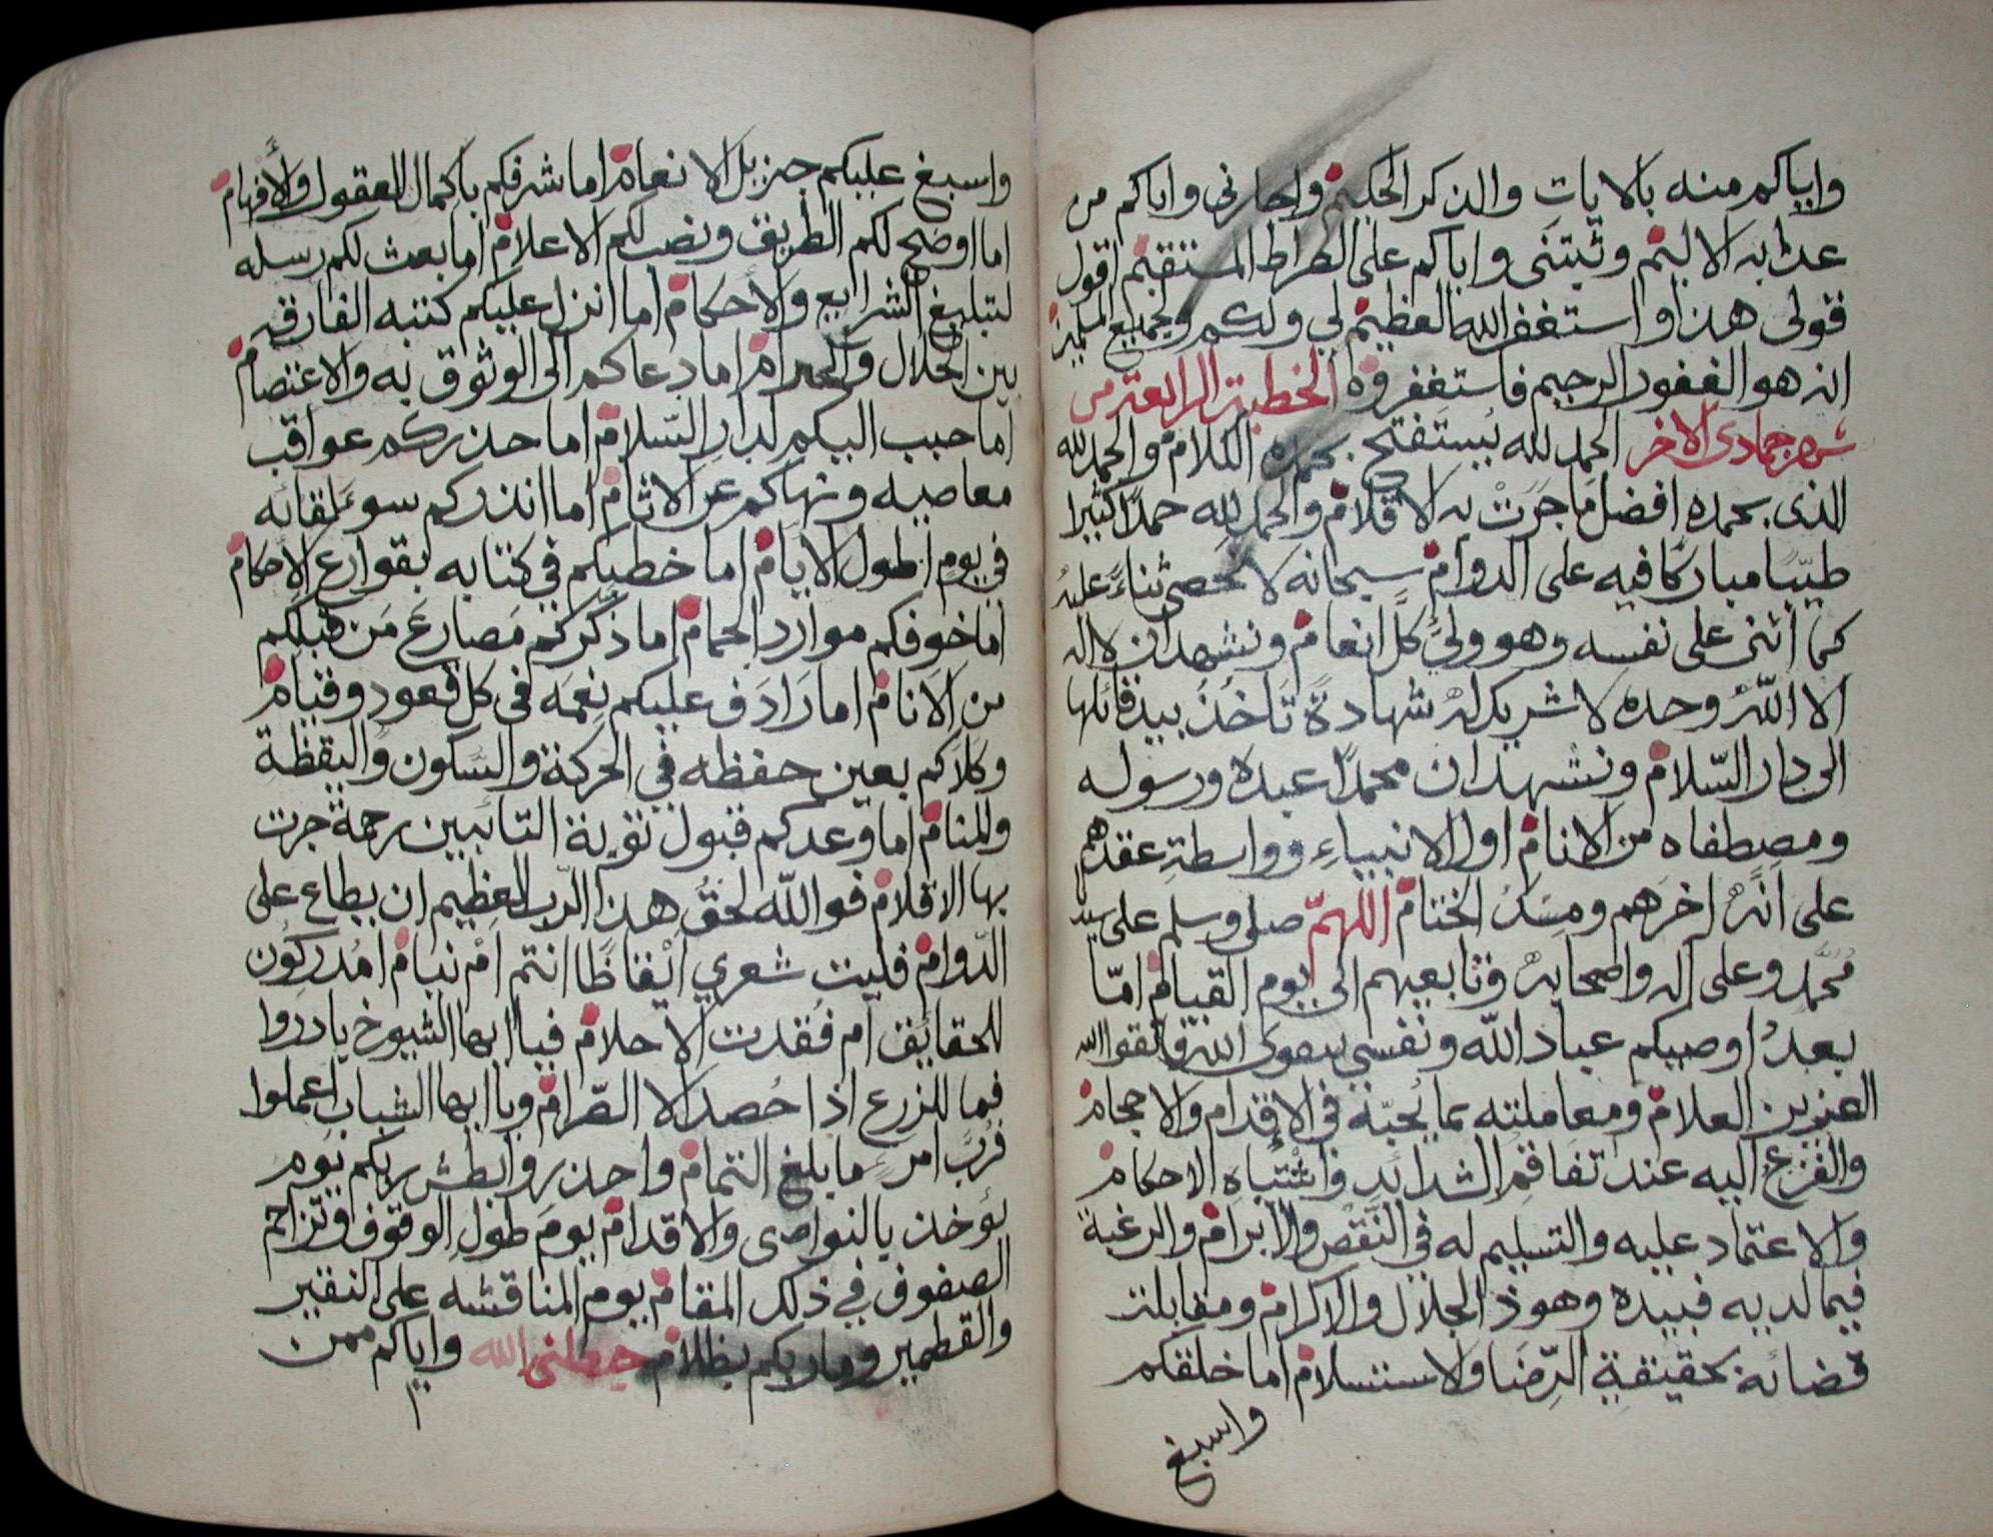 واياكم منه بالايات والذكر الحكيم واجارني واياكم من
عذابه الاليم وثبتني واياكم على الصراط المستقيم اقول
قولى هذا واستغفر الله العظيم لي ولكم ولجميع المسلمين
انه هو الغفور الرحيم فاستغفروه الخطبة الرابعة من
شهر جمادى الاخر الحمد لله يستفتح بحمده الكلام والحمد لله
الذى بحمده افضل ما جَرَتْ به الاقلام والحمد لله حمدًا كثيرا
طيّبًا مباركًا فيه على الدوام سبحانه لا نحصى ثناءً عليه
كما أثنى على نفسه وهو وليُّ كلّ انعام ونشهد ان لا اله
الا اللّٰه وحده لا شريك له شهادةً تَاخذ بيد قائلها
الى دار السّلام ونشهد ان محمدًا عبده ورسوله
ومصطفاه من الانام اول الانبياءِ وواسطة عقدهم
على انّه اخرهم ومسك الختام اللهمّ صلى وسلم على سيدنا
مُحَمَّد وعلى اله واصحابه وتابعيهم الى يوم القيام امّا
بعدُ اوصيكم عباد اللّه ونفسي بتقوى الله فاتقوا الله
العزيز العلام ومعاملته بما يُحبّه في الاقدام والاحجام
والفزع اليه عند تفاقم الشدائد واشْتباه الاحكام
والاعتماد عليه والتسليم له في النَّقض والابرام والرغبة
فيما لديه فبيده وهو ذ الجلال والاكرام ومقابلت
قضائه بحقيقة الرِّضا والاستسلام اما خلقكم
واسبغ
واسبغ عليكم جزيل الانعام اما شرفكم باكمال العقول والأفهام
اما اوضح لكم الطريق ونصب لكم الاعلام اما بعث لكم رسله
لتبليغ الشرايع والأحكام أما انزل عليكم كتبه الفارقه
بين الحلال والحرام اما دعاكم الى الوثوق به والاعتصام
اما حبب اليكم لدار السّلام اما حذركم عواقب
معاصيه ونهاكم عن الاثام اما انذركم سوء لقائه
في يوم اطول الايام اما خطبكم في كتابه بقوارع الاحكام
اما خوفكم موارد الحمام اما ذكّركم مَصارعَ مَن قبلكم
من الانام اما رَادَف عليكم نِعمَه فى كل قعود وقيام
وكلأكم بعين حفظه في الحركة والسكون واليقظة
والمنام اما وعدكم قبول توبة التائبين رحمةً جرت
بها الاقلام فو اللّه لحَقُّ هذا الرّب العظيم ان يطاع على
الدّوام فليت شعري ايْقاظًا انتم امْ نيام امُدركون
للحقائق أم فُقدت الاحلام فيا ايها الشيوخ بادروا
فما للزرع اذا حُصد الا الصّرام ويا ايها الشباب اعملوا
فرُبّ امرءٍ ما بلغ التمام واحذروا بطش ربكم يوم
يؤخذ بالنواصى والاقدام يومَ طول الوقوف وتزاحم
الصفوف في ذلك المقام يوم المناقشه على النقير
والقطمير وما ربكم بظلام جعلنى الله واياكم ممن